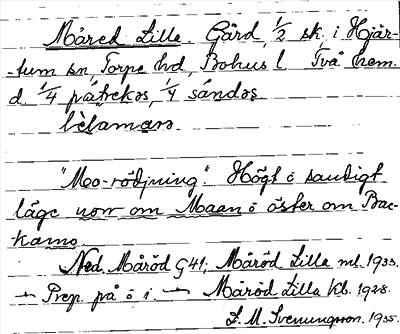 Måred Lilla. Gård, 1/2 sk. i Hjär-
tum sn, Torpe hd, Bohus l Två hem.
d. 1/4 påtrekos, 1/4 såndos
bèlamans.
"Mo-rödjning". Högt o sandigt
läge norr om Maan o öster om Bac-
kamo
Ned. Måröd G41; Måröd Lilla ml. 1933.
→ Prep. på ö i. → Måröd Lilla kb. 1928.
L. M. Svenungson. 1935.